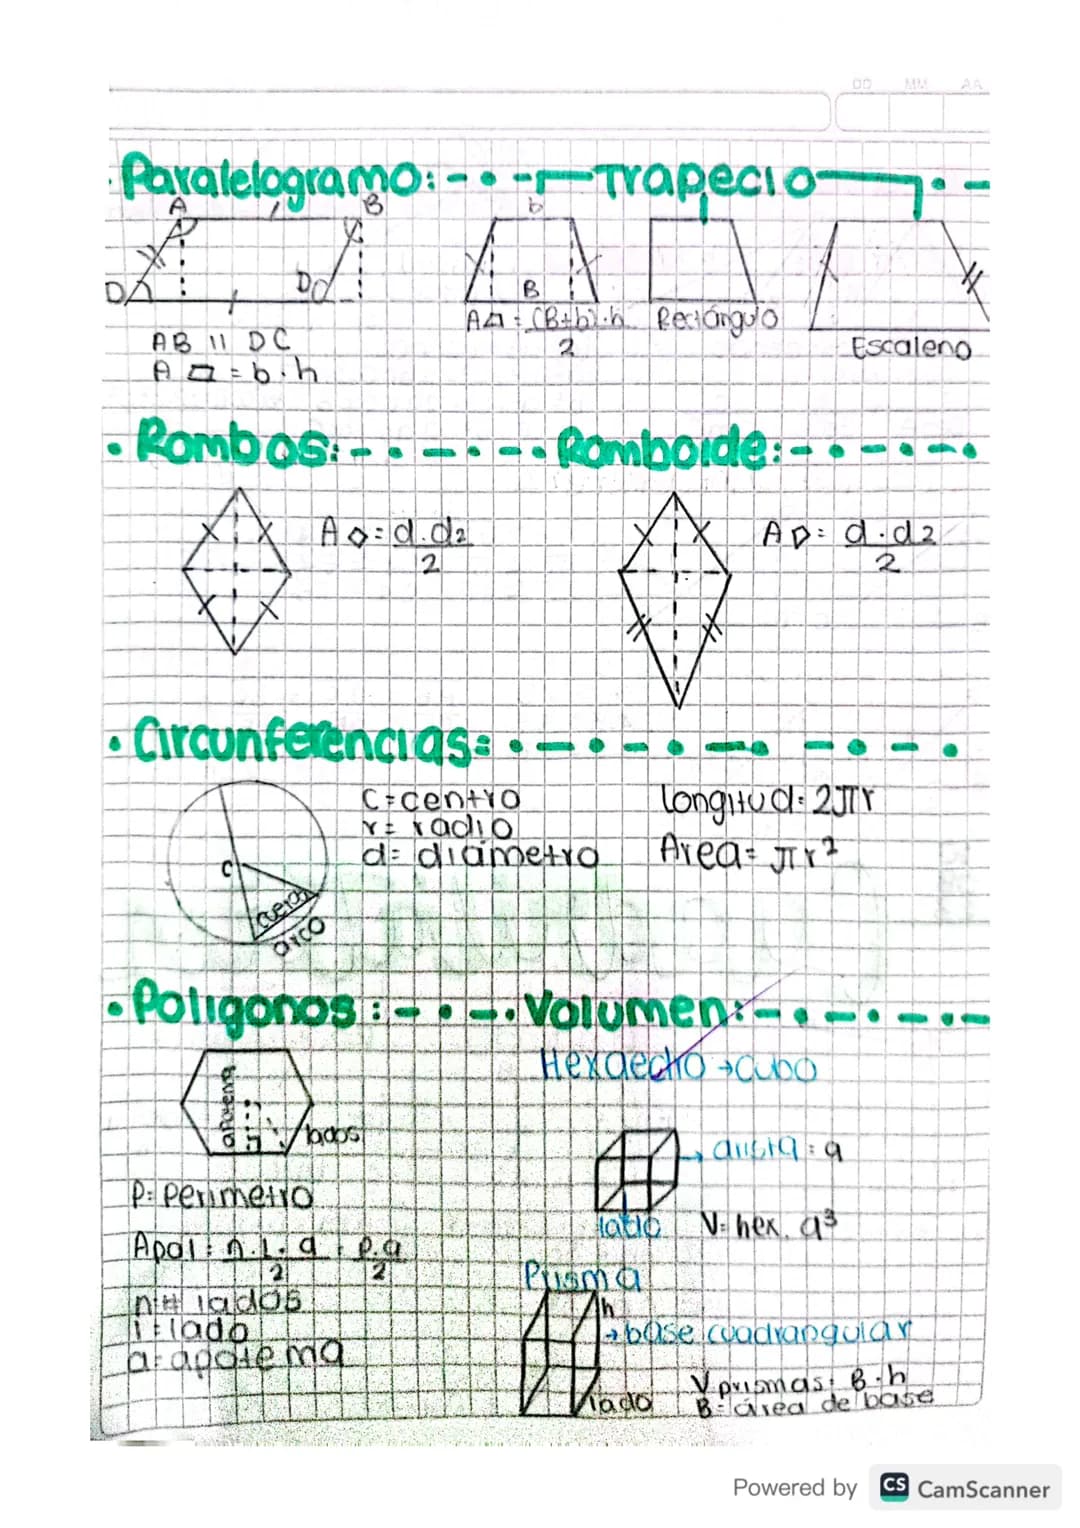 DD MM AA
Paralelogramo: Trapecio
A B b
D D B
AB || DC
A ▱ = b.h
A⏢ = (B+b).h
2
Rectángulo
Escaleno
Rombos: Romboide:
A◇ = d.d2
2
A▷ = d.d2
2
Circunferencias:
C = centro
r = radio
d = diámetro
longitud = 2πr
Area = πr²
C
cuerda
arco
Poligonos: Volumen:
apotema
lados
P = Perimetro
Apol = n.L.a = p.a
2 2
n = # lados
l = lado
a = apotema
Hexaedro → Cubo
arista = a
lado
V = hex. a³
Prisma
h
→ base cuadrangular
lado
V prismas = B.h
B = área de base
Powered by CS CamScanner